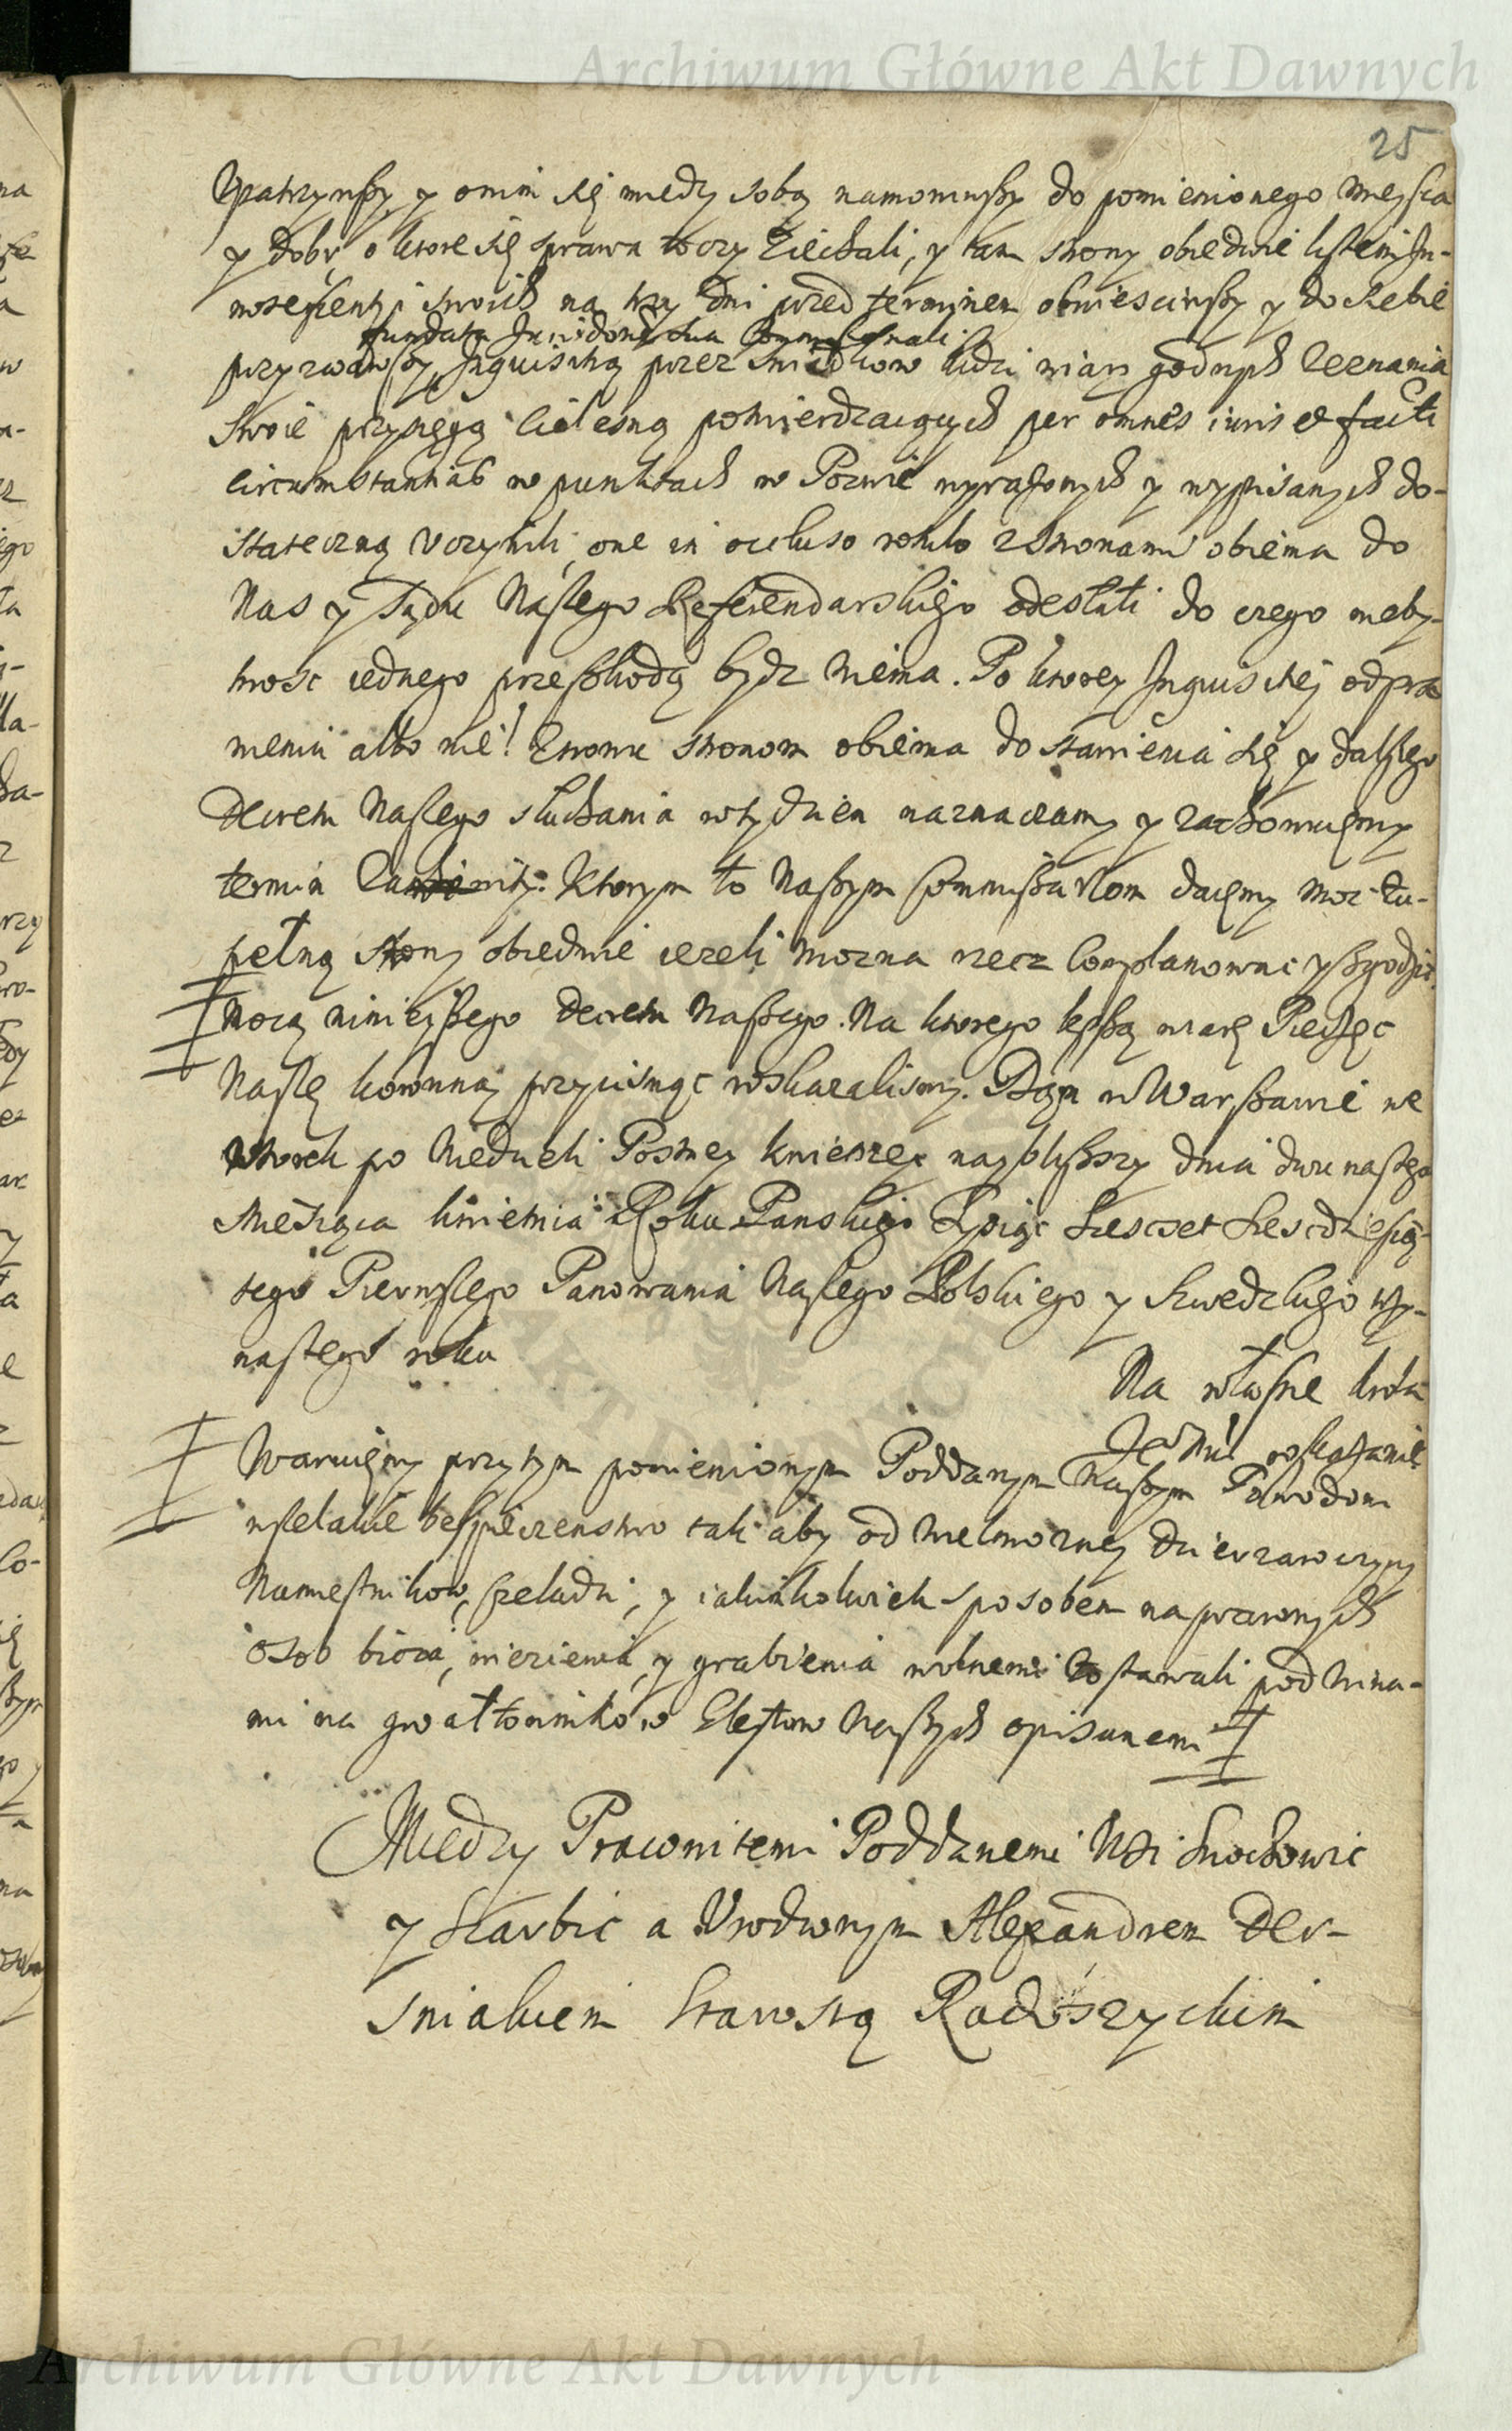 Archiwum Główne Akt Dawnych
25
Upatrzywszy y onim się miedzy sobą namowiwszy do pomienionego mieysca
y dobr, o ktore się sprawa toczy Ziechali, y tam strony obiedwie listemi In-
notescenty i swoich na trzy dni przed terminem obwiesciwszy y do siebie
fundata Jurisdone sua Commissionali
przyzwawszy, Inquisitią przez swiadkow ludzi wiary godnych Zeznania
swoie przysięgą cielesną potwierdzaiących per omnes iuris et facti
circumstantias w punktach w Pozwie wyrażonych y wypisanych do-
stateczną uczynili, one in occluso rotulo z stronami obiema do
Nas y Sądu Naszego Referendarskiego odesłali do czego nieby-
tnosc iednego przeszkodą bydz niema. Po ktorey Inquisitiej odpra
wieniu albo nie! Znowu stronom obiema do stawienia się y dalszego
Decretu Naszego słuchania w tydzien naznaczamy y zachowuięmy
termin . Ktorym to Naszym Commissarzom daięmy moc zu-
pełną strony obiedwie iezeli mozna rzecz complanowac y zgodzic.
Mocą ninieyszego Decretu Naszego. Na ktorego lepszą wiarę Pieczęc
Naszę koronną przycisnąc roskazalismy. Dan w Warszawie we
wtorek po Niedzieli Postney kwietney naybliższy dnia dwunastego
Miesiąca kwietnia Roku Panskiego Tysiąc Szescset Szescdziesią-
tego Pierwszego Panowania Naszego Polskiego y Szwedzkiego trzy-
nastego roku
Na własne krola
Je° Mci roskazanie
Waruięmy przytym pomienionym Poddanym Naszym Powodom
wszelakie bespieczenstwo tak aby od Wielmozney dzierzawczyny
Namiestnikow, czeladzi, y iakimkolwiek sposobem naprawnych
osob bicia, więzienia, y grabienia wolnemi zostawali pod wina-
mi na gwałtownikow Gleytow Naszych opisanemi
Miedzy Pracowitemi Poddanemi Wsi Snochowic
y Szarbic a Urodzonym Alexandrem Der-
sniakiem Starostą Radoszyckim
Archiwum Główne Akt Dawnych